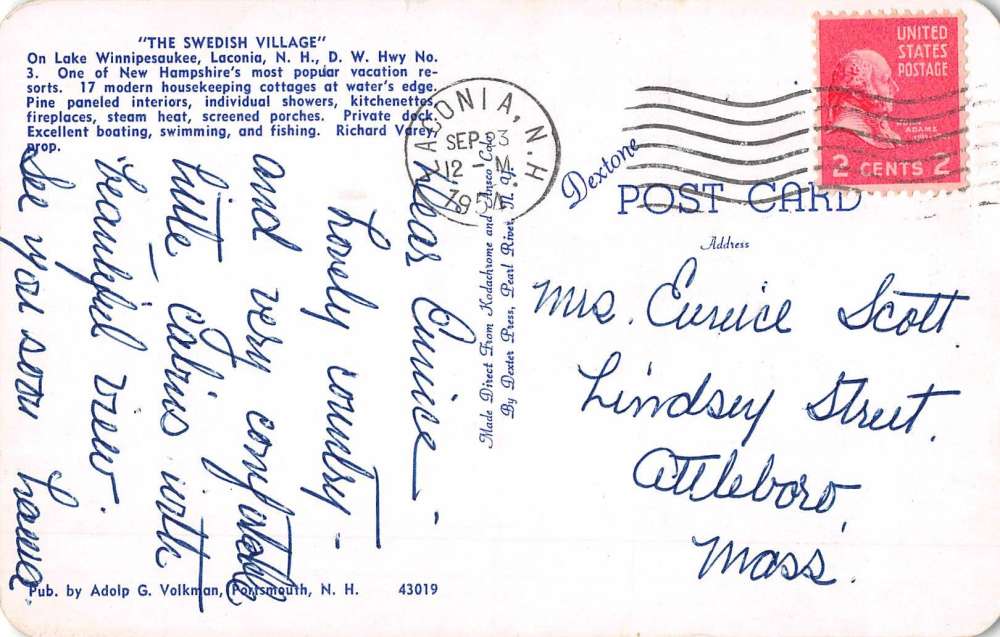 "THE SWEDISH VILLAGE"
On Lake Winnipesaukee, Laconia, N. H., D. W. Hwy No.
3. One of New Hampshire's most popular vacation re-
sorts. 17 modern housekeeping cottages at water's edge.
Pine paneled interiors, individual showers, kitchenettes,
fireplaces, steam heat, screened porches. Private dock.
Excellent boating, swimming, and fishing. Richard Varey,
prop.
Dear Eunice –
Lovely country –
and very comfortable
little cabins with
beautiful view.
See you soon
Pub. by Adolp G. Volkman, Portsmouth, N. H. 43019
Made Direct From Kodachrome and Ansco Color
By Dexter Press, Pearl River, N. Y.
LACONIA, N.H
SEP 23
12 - M
UNITED
STATES
POSTAGE
ADAMS
2 CENTS 2
Dextone
POST CARD
Address
Mrs. Eunice Scott
Lindsey Street.
Attleboro,
Mass.